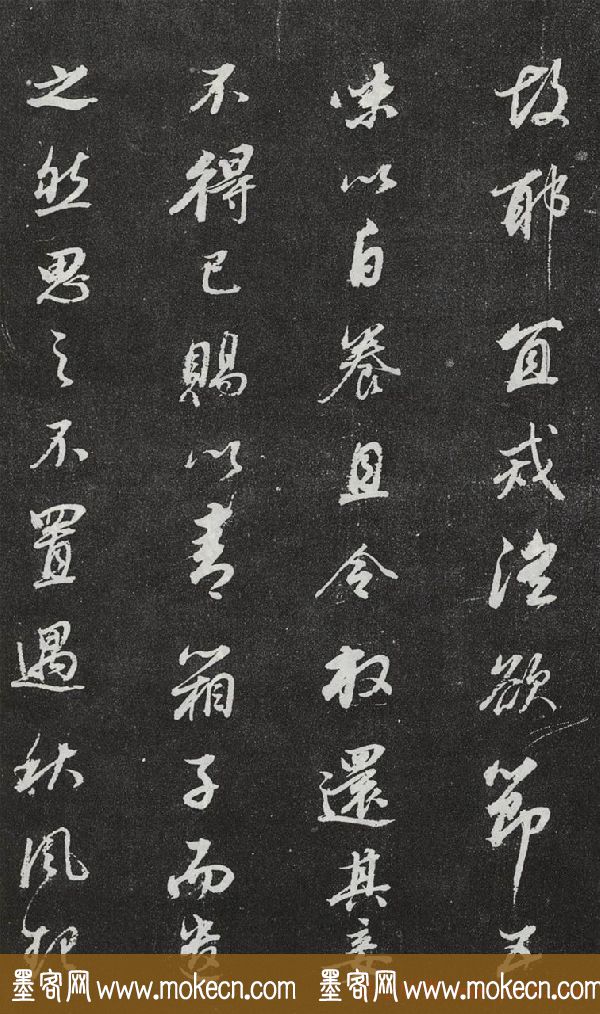 故耶宜戒淫欲節五
味以自養且令放還其妾
不得已賜以青箱子而
之然思之不置遇秋風起
墨客网 www.mokecn.com 墨客网 www.mokecn.com